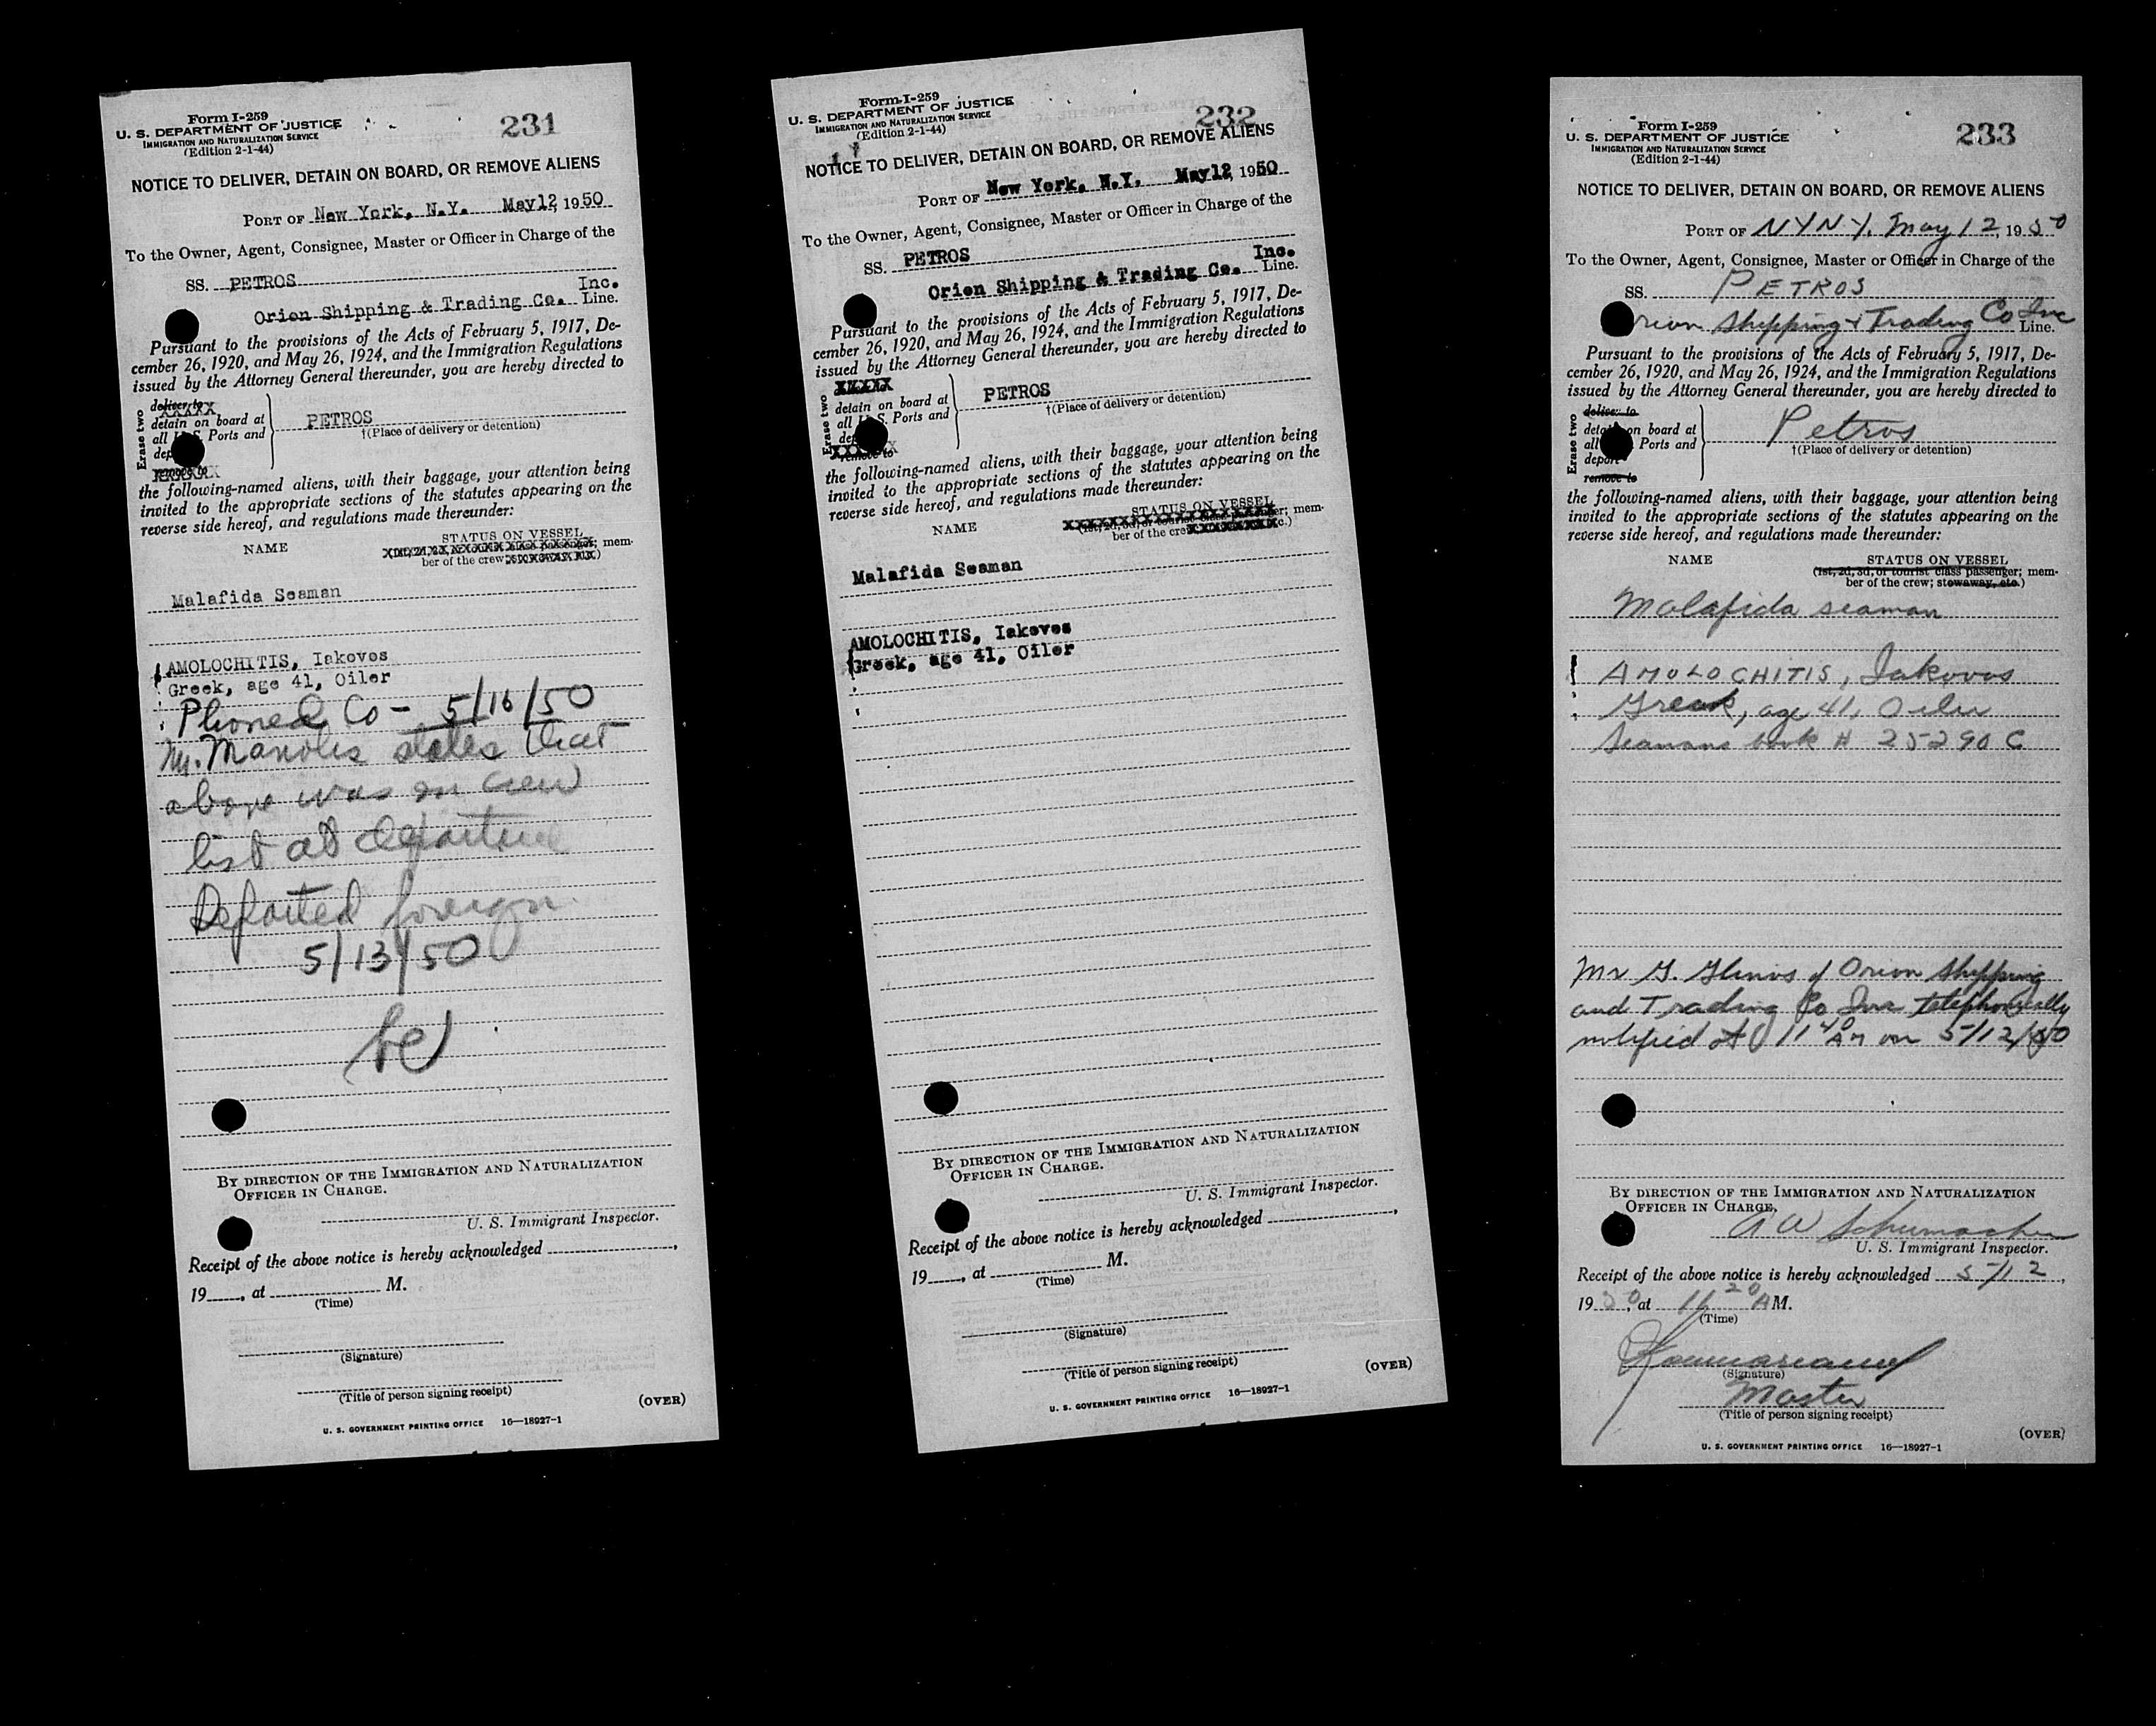 Form I-259
U. S. DEPARTMENT OF JUSTICE
IMMIGRATION AND NATURALIZATION SERVICE
(Edition 2-1-44)
231
NOTICE TO DELIVER, DETAIN ON BOARD, OR REMOVE ALIENS
PORT OF New York, N.Y. May12, 1950
To the Owner, Agent, Consignee, Master or Officer in Charge of the
SS. PETROS
Inc.
Orion Shipping & Trading Co. Line.
Pursuant to the provisions of the Acts of February 5, 1917, De-
cember 26, 1920, and May 26, 1924, and the Immigration Regulations
issued by the Attorney General thereunder, you are hereby directed to
Erase two
deliver to
detain on board at
all U.S. Ports and
PETROS
†(Place of delivery or detention)
remove to
the following-named aliens, with their baggage, your attention being
invited to the appropriate sections of the statutes appearing on the
reverse side hereof, and regulations made thereunder:
NAME
STATUS ON VESSEL
passenger; mem-
ber of the crew
Malafida Seaman
AMOLOCHITIS, Iakovos
Greek, age 41, Oiler
Phoned Co - 5/16/50
Mr. Manolis states that
above was on crew
list at departure
Departed foreign
5/13/50
BY DIRECTION OF THE IMMIGRATION AND NATURALIZATION
OFFICER IN CHARGE.
U. S. Immigrant Inspector.
Receipt of the above notice is hereby acknowledged
19 , at M.
(Time)
(Signature)
(Title of person signing receipt)
(OVER)
U. S. GOVERNMENT PRINTING OFFICE 16—18927-1
Form I-259
U. S. DEPARTMENT OF JUSTICE
IMMIGRATION AND NATURALIZATION SERVICE
(Edition 2-1-44)
232
NOTICE TO DELIVER, DETAIN ON BOARD, OR REMOVE ALIENS
PORT OF New York, N.Y. May12, 1950
To the Owner, Agent, Consignee, Master or Officer in Charge of the
SS. PETROS
Inc.
Orion Shipping & Trading Co. Line.
Pursuant to the provisions of the Acts of February 5, 1917, De-
cember 26, 1920, and May 26, 1924, and the Immigration Regulations
issued by the Attorney General thereunder, you are hereby directed to
Erase two
detain on board at
all U.S. Ports and
PETROS
†(Place of delivery or detention)
remove to
the following-named aliens, with their baggage, your attention being
invited to the appropriate sections of the statutes appearing on the
reverse side hereof, and regulations made thereunder:
NAME
STATUS ON VESSEL
(1st, 2d, 3d, or tourist class passenger; mem-
ber of the crew
Malafida Seaman
AMOLOCHITIS, Iakovos
Greek, age 41, Oiler
BY DIRECTION OF THE IMMIGRATION AND NATURALIZATION
OFFICER IN CHARGE.
U. S. Immigrant Inspector.
Receipt of the above notice is hereby acknowledged
19 , at M.
(Time)
(Signature)
(Title of person signing receipt)
(OVER)
U. S. GOVERNMENT PRINTING OFFICE 16—18927-1
Form I-259
U. S. DEPARTMENT OF JUSTICE
IMMIGRATION AND NATURALIZATION SERVICE
(Edition 2-1-44)
233
NOTICE TO DELIVER, DETAIN ON BOARD, OR REMOVE ALIENS
PORT OF NYNY, May 12, 1950
To the Owner, Agent, Consignee, Master or Officer in Charge of the
SS. PETROS
Orion Shipping & Trading Co Inc Line.
Pursuant to the provisions of the Acts of February 5, 1917, De-
cember 26, 1920, and May 26, 1924, and the Immigration Regulations
issued by the Attorney General thereunder, you are hereby directed to
Erase two
deliver to
detain on board at
all Ports and
depart
Petros
†(Place of delivery or detention)
remove to
the following-named aliens, with their baggage, your attention being
invited to the appropriate sections of the statutes appearing on the
reverse side hereof, and regulations made thereunder:
NAME
STATUS ON VESSEL
(1st, 2d, 3d, or tourist class passenger; mem-
ber of the crew; stowaway, etc.)
Malafida seaman
AMOLOCHITIS, Iakovos
Greek, age 41, Oiler
Seamans book # 25290 C
Mr G. Glinos of Orion Shipping
and Trading Co Inc telephonically
notified at 11 40 AM on 5/12/50
BY DIRECTION OF THE IMMIGRATION AND NATURALIZATION
OFFICER IN CHARGE.
A W Schumacher
U. S. Immigrant Inspector.
Receipt of the above notice is hereby acknowledged 5/12,
1950, at 11 20 A M.
(Time)
(Signature)
Master
(Title of person signing receipt)
(OVER)
U. S. GOVERNMENT PRINTING OFFICE 16—18927-1